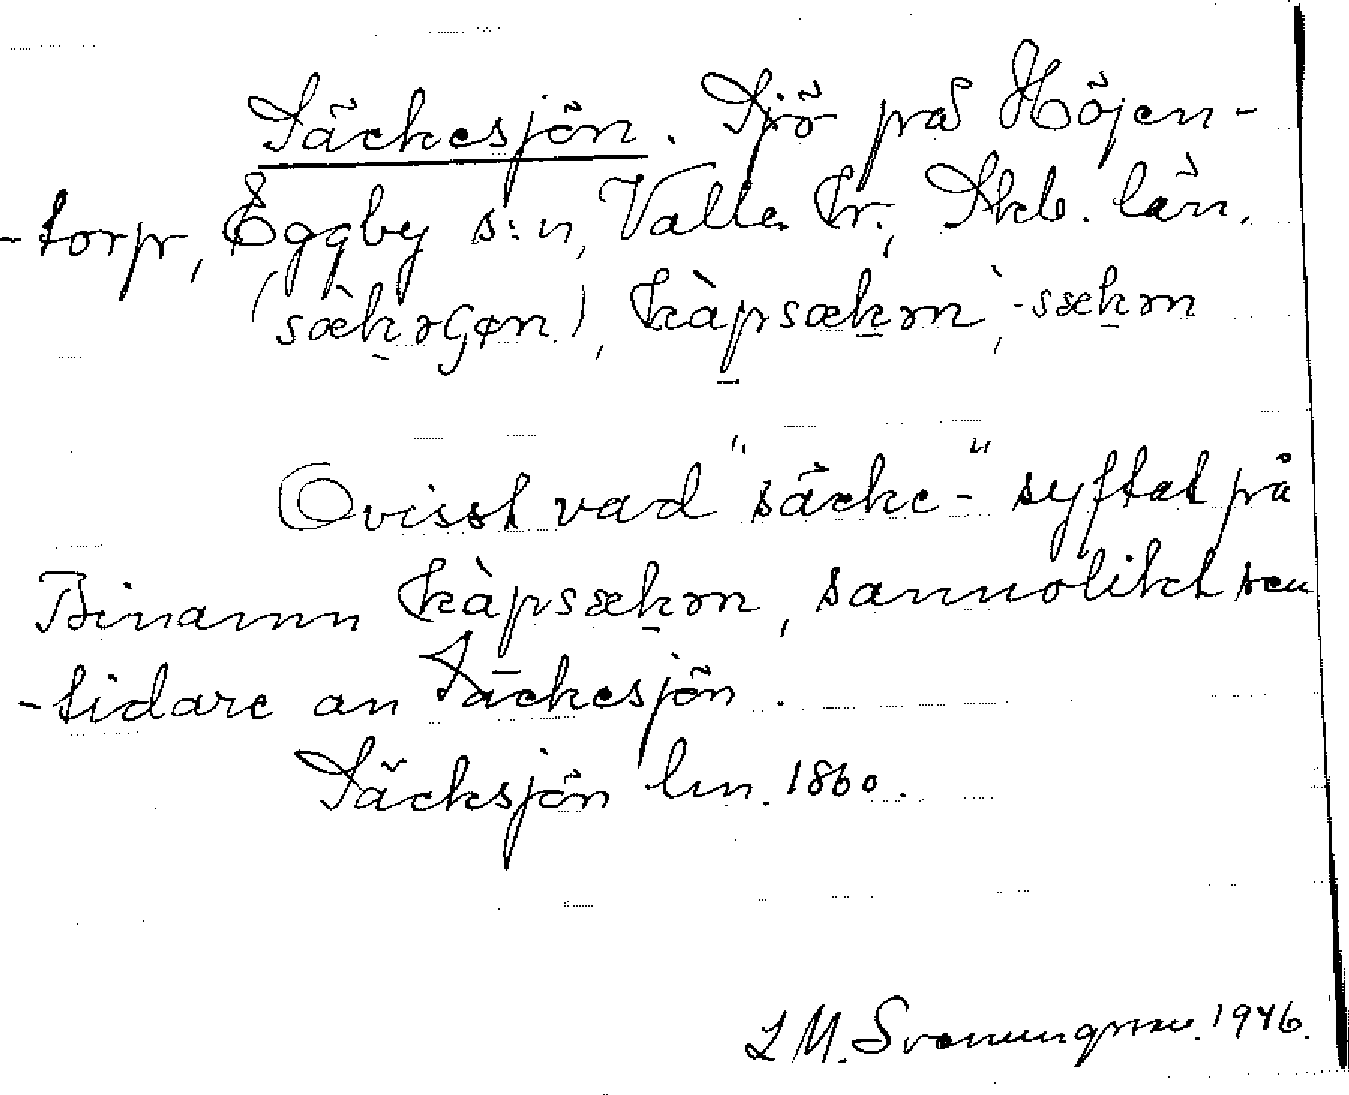 Säckesjön. Sjö på Höjen-
-torp, Eggby s:n, Valle hr., Skb. län.
(sækəɢøn), kàpsækən, -sækən
Ovisst vad "säcke-" syftat på
Binamn kàpsækən, sannolikt sen
-tidare an Säckesjön.
Säcksjön lm. 1860.
L M. Svenungsson. 1946.